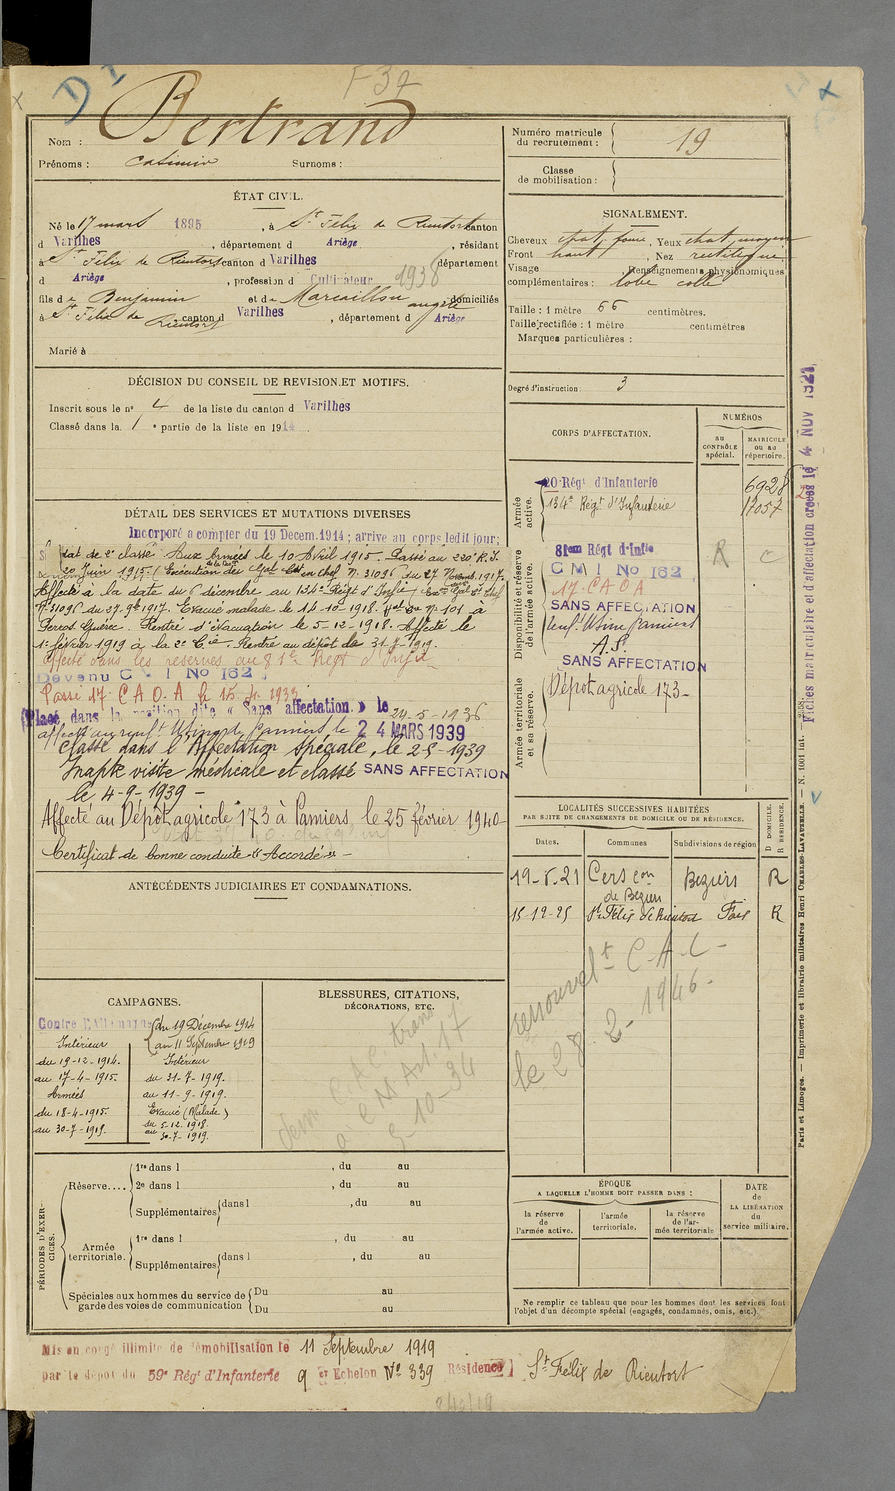 D 1
F 37
Nom : Bertrand
Prénoms : Casimir Surnoms :
ÉTAT CIVIL.
Né le 17 mars 1895, à St Félix de Rieutort canton
d Varilhes, département d Ariège, résidant
à St Félix de Rieutort canton d Varilhes département
d Ariège, profession d Cultivateur 1938
fils de Benjamin et de Marcaillou Angèle domiciliés
à St Félix de Rieutort, canton d Varilhes, département d Ariège
Marié à
DÉCISION DU CONSEIL DE REVISION ET MOTIFS.
Inscrit sous le no 4 de la liste du canton d Varilhes
Classé dans la 1e partie de la liste en 1914.
DÉTAIL DES SERVICES ET MUTATIONS DIVERSES
Incorporé a compter du 19 Decem.1914 ; arrive au corps ledit jour;
Soldat de 2e classe Aux Armées le 10 Avril 1915. Passé au 220e R.I.
20 Juin 1915. (Exécution de la Don du Gal Ct en chef No 31096 du 27 Novemb. 1917.
Affecté à la date du 6 décembre au 134e Régt d'Infie
No 31096 du 27.9bre 1917. Evacué malade le 14-10-1918. No 101 à
Perros Guirec. Rentré d'évacuation le 5-12-1918. Affecté le
1er février 1919 à la 2e Cie. Rentré au dépôt le 31-7-1919.
Affecté dans les réserves au 81e Régt d'Infie
Devenu C M I No 162
Passé 17. C A O. A le 15.
Placé dans la position dite « Sans affectation » le 24-5-1936
affecté au renft Usines Pamiers, le 24 MARS 1939
Classé dans l'Affectation spéciale, le 2-8-1939
Inapte visite médicale et classé SANS AFFECTATION
le 4-9-1939 -
Affecté au Dépôt agricole 173 à Pamiers, le 25 février 1940-
Certificat de bonne conduite « Accordé » -
ANTÉCÉDENTS JUDICIAIRES ET CONDAMNATIONS.
CAMPAGNES.
Contre l'Allemagne du 19 Décembre 1914
au 11 Septembre 1919
Intérieur
du 19-12-1914.
au 17-4-1915.
Armées
du 18-4-1915.
au 30-7-1919.
Intérieur
du 31-7-1919.
au 11-9-1919.
Evacué (Malade)
du 5.12.1918.
au 30-7-1919.
BLESSURES, CITATIONS,
DÉCORATIONS, ETC.
PÉRIODES D'EXERCICES.
Réserve.... 1re dans l , du au
2e dans l , du au
Supplémentaires dans l , du au
Armée territoriale. 1re dans l , du au
Supplémentaires dans l , du au
Spéciales aux hommes du service de garde des voies de communication Du au
Du au
Numéro matricule
du recrutement : 19
Classe
de mobilisation :
SIGNALEMENT.
Cheveux chat. foncé, Yeux chat. moyen
Front haut, Nez rectiligne
Visage , Renseignements physionomiques
complémentaires : lobe collé
Taille : 1 mètre 66 centimètres.
Taille rectifiée : 1 mètre centimètres
Marques particulières :
Degré d'instruction : 3
CORPS D'AFFECTATION.
NUMÉROS
au contrôle spécial.
MATRICULE ou au répertoire.
Armée active.
20 Régt d'Infanterie 6928
134e Régt d'Infanterie 17057
Disponibilité et réserve de l'armée active.
81em Régt d'Infie R C
C M I No 162
17. C A O A
SANS AFFECTATION
renft Usine Pamiers
A.S.
SANS AFFECTATION
Armée territoriale et sa réserve.
Dépôt agricole 173-
LOCALITÉS SUCCESSIVES HABITÉES
PAR SUITE DE CHANGEMENTS DE DOMICILE OU DE RÉSIDENCE.
Dates. Communes Subdivisions de région D DOMICILE. R RÉSIDENCE.
19-5-21 Cers con de Beziers Beziers R
15-12-25 St Félix de Rieutort Foix R
renouvelt C-A-C-
le 28-2-1946-
ÉPOQUE
A LAQUELLE L'HOMME DOIT PASSER DANS :
la réserve de l'armée active.
l'armée territoriale.
la réserve de l'armée territoriale
DATE
de
LA LIBÉRATION
du
service militaire.
Ne remplir ce tableau que pour les hommes dont les services font
l'objet d'un décompte spécial (engagés, condamnés, omis, etc.)
Fiches matriculaire et d'affectation créées le 4 NOV 1921
Paris et Limoges. — Imprimerie et librairie militaires Henri CHARLES-LAVAUZELLE. — N. 1001 Int. —
Mis en congé illimité de démobilisation le 11 Septembre 1919
par le dépôt du 59e Régt d'Infanterie 9 er Echelon No 339 Résidence St Félix de Rieutort